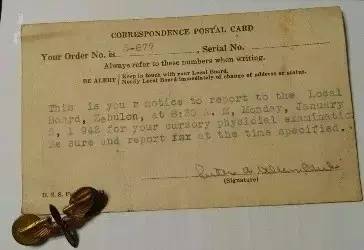 CORRESPONDENCE POSTAL CARD
Your Order No. is 3-879, Serial No.
Always refer to these numbers when writing.
BE ALERT Keep in touch with your Local Board.
Notify Local Board immediately of change of address or status.
This is you r notice to report to the Local
Board, Zebulon, at 8:30 A. M, Monday, January
5, 1 942 for your cursory physicial examinatio
Be sure and report fax at the time specified.
(Signature)
D. S. S.